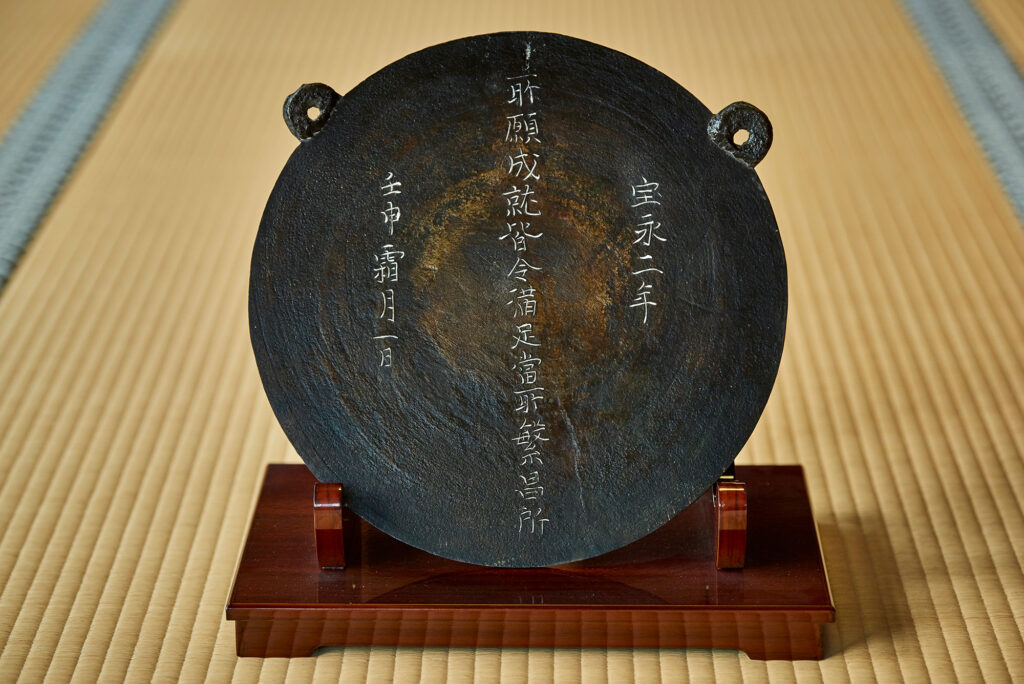 宝永二年
㪽願成就皆令満足當㪽繁昌所
壬申霜月一日